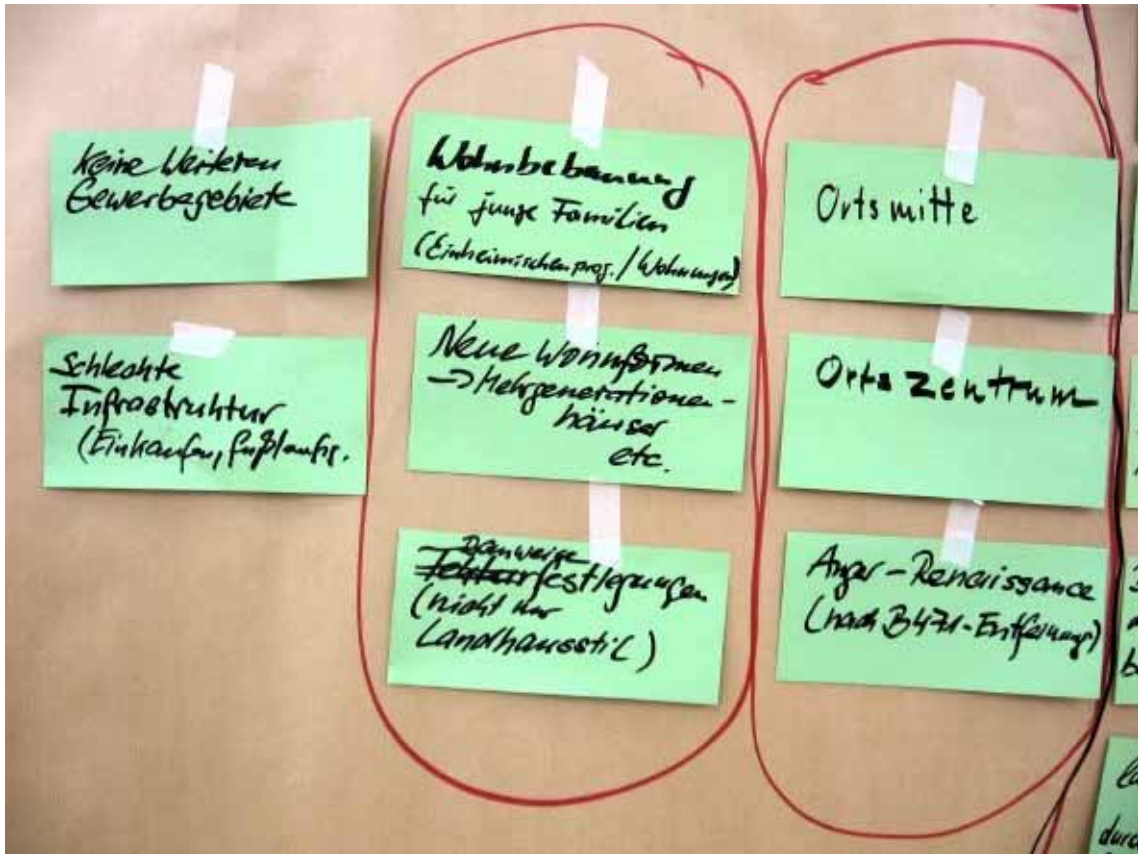 Keine Weiteren
Gewerbegebiete
Schlechte
Infrastruktur
(Einkaufen, fußläufig.
Wohnbebauung
für junge Familien
(Einheimischenprog./Wohnungen)
Neue Wohnformen
→ Mehrgenerationen-
häuser
etc.
Bauweise
festlegungen
(nicht nur
Landhausstil)
Ortsmitte
Ortszentrum
Anger-Renaissance
(nach B471-Entfernung)
durch